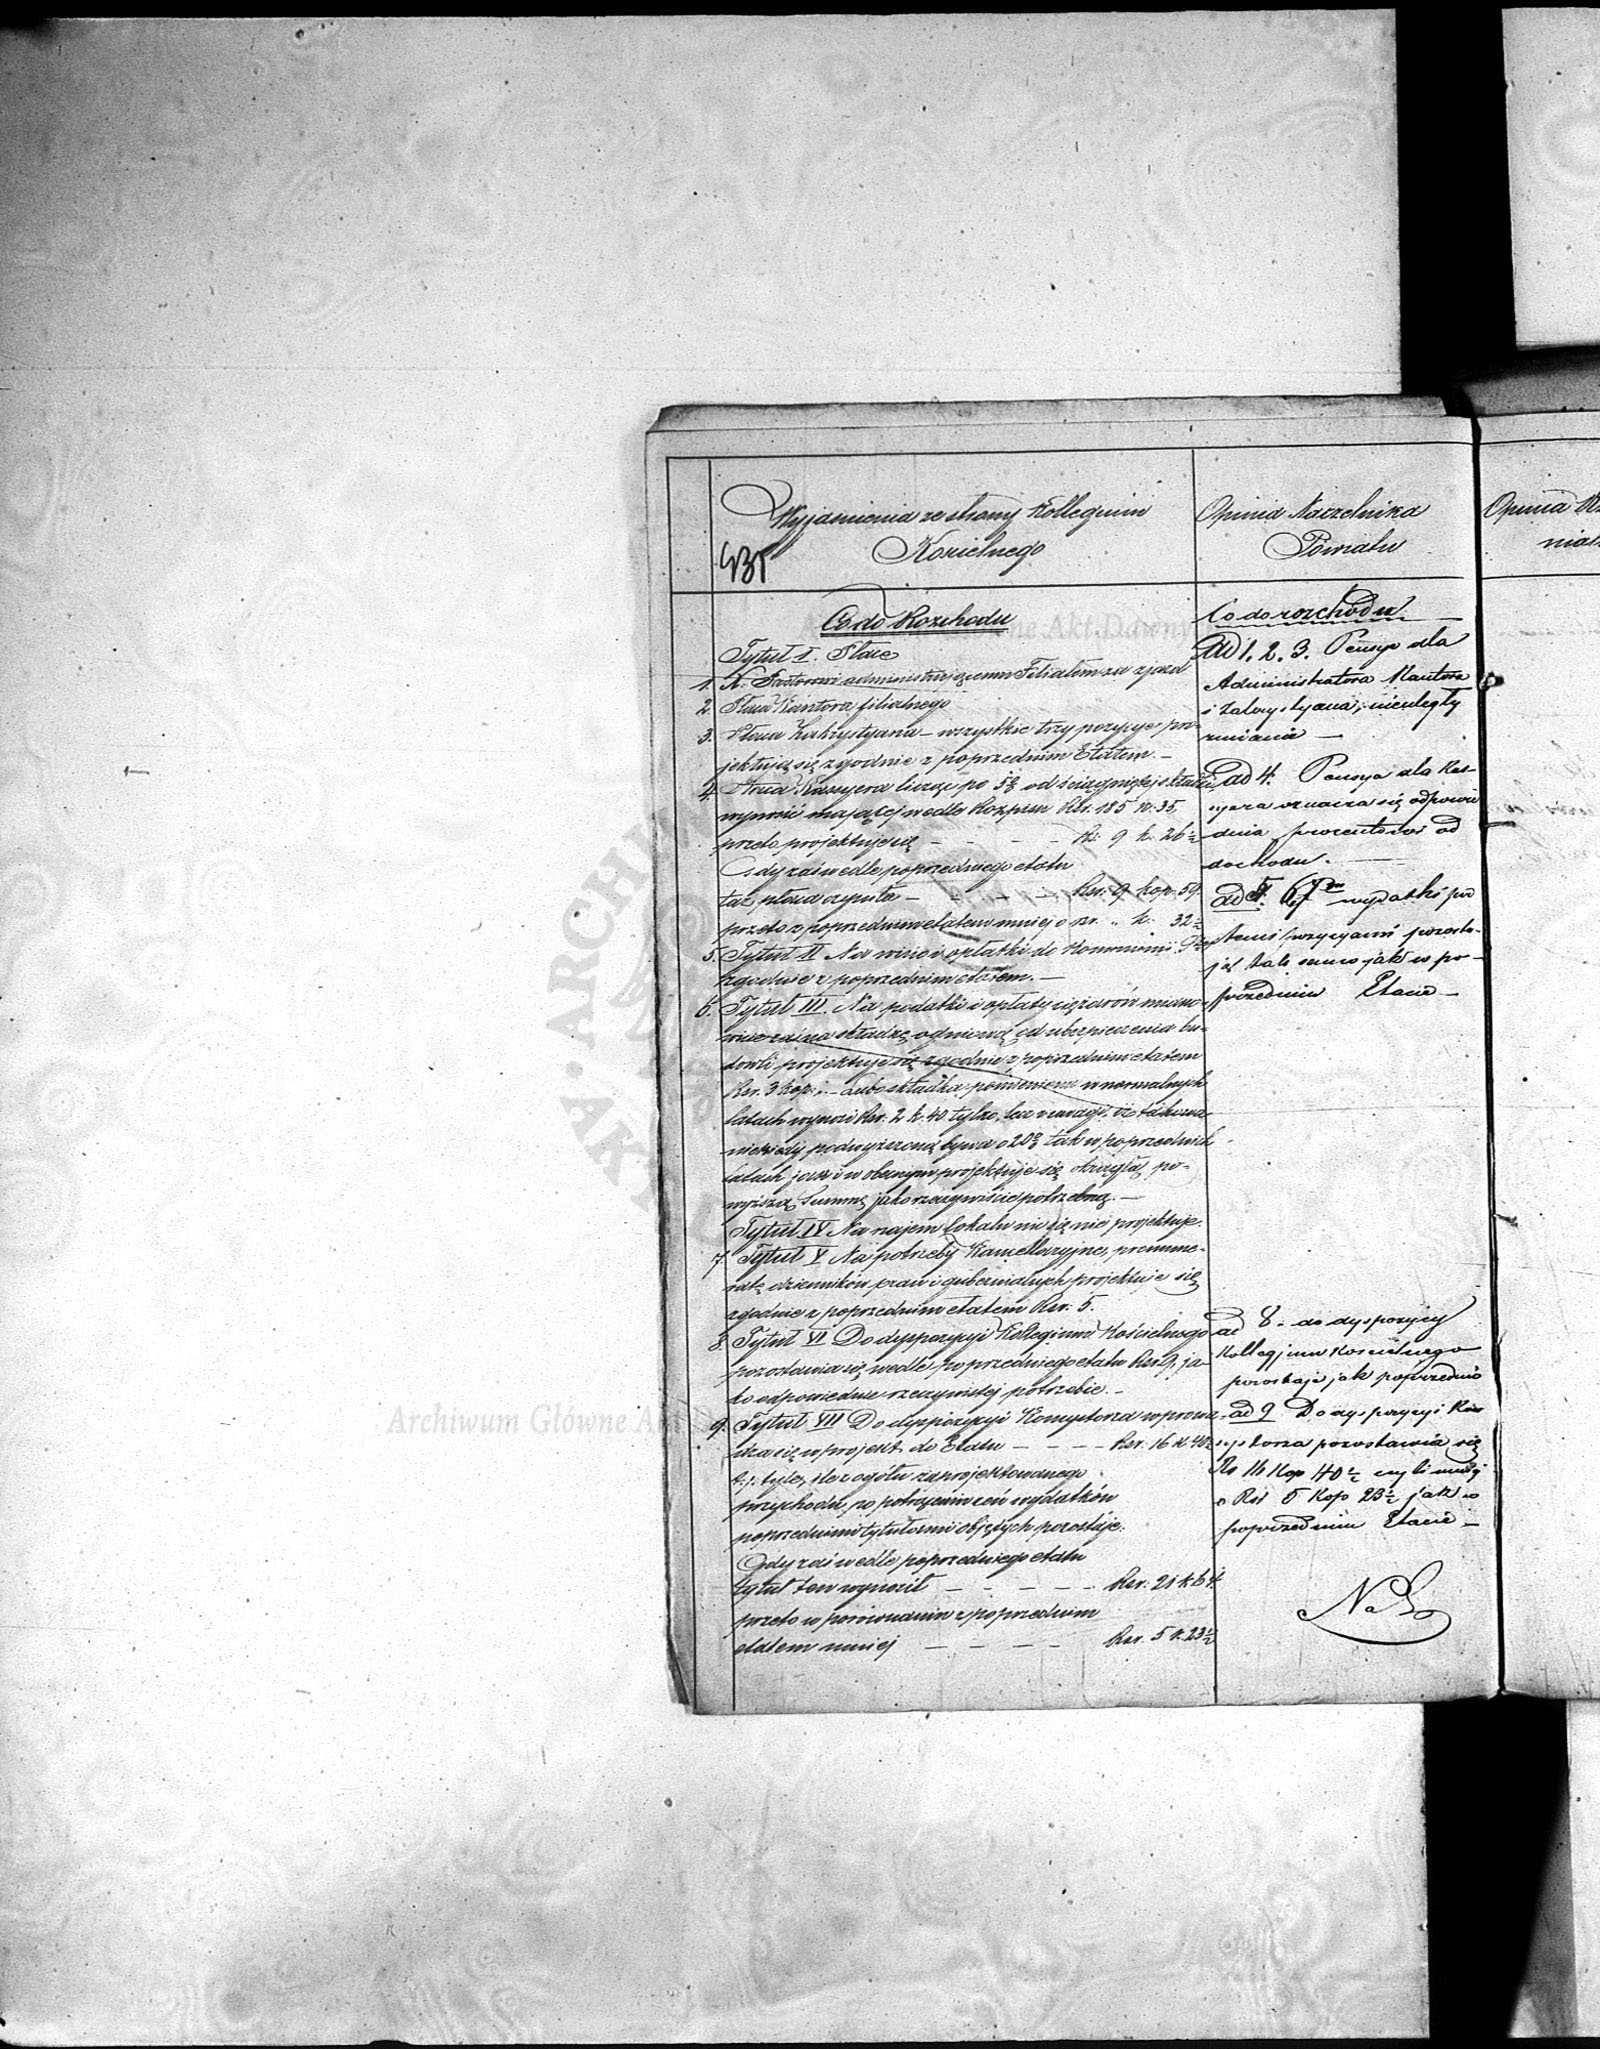 Wyjaśnienia ze strony Kollegium
Kościelnego
Opinia Naczelnika
Powiatu
Opinia
Co do Rozchodu
Tytuł I. Płace
1. X. Pastorowi administrującemu Filiałem za zjazd
2. Płaca Kantora filialnego
3. Płaca Zakrystyana – wszystkie trzy pozycye pro-
jektują się zgodnie z poprzednim Etatem. –
4. Płaca Kassyera licząc po 5% od ściągniętej składki
wynosić mającej wedle Rozpisu Rsr. 185 k. 35,
przeto projektuje się – – – – Rs. 9 k. 26½
Gdy zaś wedle poprzedniego etatu
taż płaca czyniła – – – – Rsr. 9 kop. 59
przeto z poprzednim etatem mniej o rsr. „ k. 32½
5. Tytuł II Na wino i opłatki do Kommunii:
zgodnie z poprzednim etatem. –
6. Tytuł III. Na podatki i opłaty ciężarów miano-
wicie zaś na składkę ogniową od ubezpieczenia bu-
dowli projektuje się zgodnie z poprzednim etatem
Rsr. 3 kop. – Lubo składka pomieniona w normalnych
latach wynosi Rsr. 2 k. 40 tylko, lecz z uwagi, że takowa
niekiedy podwyższoną bywa o 20% tak w poprzednich
latach jak i w obecnym projektuje się okrągłą po-
wyższą Summę jako rzeczywiście potrzebną. –
Tytuł IV Na najem lokalu nic się nie projektuje.
7. Tytuł V Na potrzeby Kancellaryjne, prenume-
ratę dzienników praw i gubernialnych projektuje się
zgodnie z poprzednim etatem Rsr. 5.
8. Tytuł VI Do dyspozycyi Kollegium Kościelnego
pozostawia się wedle poprzedniego etatu Rsr. 9, ja-
ko odpowiednie rzeczywistej potrzebie. –
9. Tytuł VII Do dyspozycyi Konsystorza wprowa-
dza się w projekt do Etatu – – – – Rsr. 16 k. 40½
t. j. tyle, ile z ogółu zaprojektowanego
przychodu, po potrąceniu zeń wydatków
poprzedniemi tytułami objętych pozostaje.
Gdy zaś wedle poprzedniego etatu
tytuł ten wynosił – – – – – Rsr. 21 k. 64
przeto w porównaniu z poprzednim
etatem mniej – – – – Rsr. 5 k. 23½
Co do rozchodu
Ad 1. 2. 3. Pensye dla
Administratora Kantora
i Zakrystyana, nieuległy
zmianie –
ad 4. Pensya dla Kas-
syera oznacza się odpowie-
dnia procentowi od
dochodu. –
ad 5. 6, 7 wydatki pod
temi pozycyami pozosta-
ją takie same jak w po-
przednim Etacie –
ad 8 – do dyspozycyi
Kollegjum Kościelnego
pozostaje jak poprzednio
ad 9 Do dyspozycyi Kon
systorza pozostawia się
Rs 16 Kop 40½ czyli mniej
o Rsr 5 Kop 23½ jak w
poprzednim Etacie –
Archiwum Główne Akt Dawnych